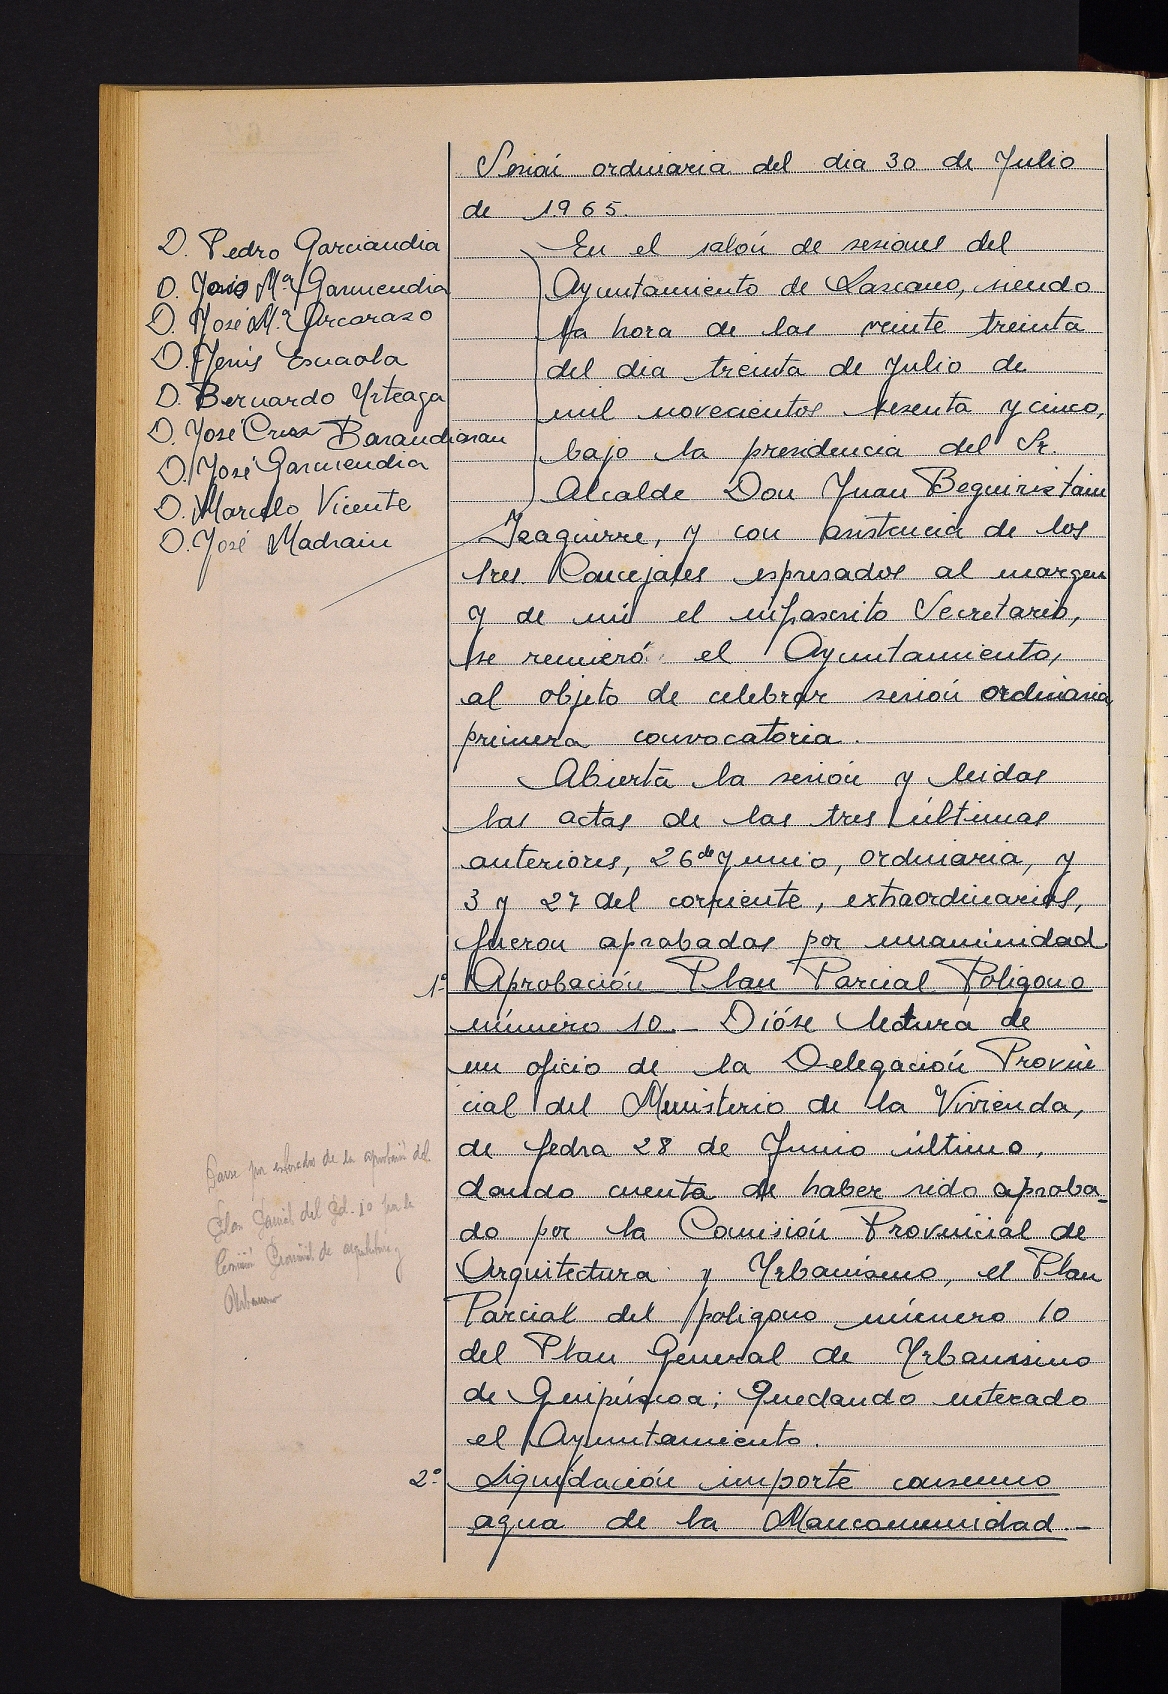 Sesión ordinaria del dia 30 de Julio
de 1965.
D. Pedro Garciandia
D. Jesús Mª Garmendia
D. José Mª Arcaraso
D. Jesús Esnaola
D. Bernardo Urteaga
D. José Cruz Barandiaran
D. José Garmendia
D. Marcelo Vicente
D. José Madrain
En el salón de sesiones del
Ayuntamiento de Lazcano, siendo
la hora de las veinte treinta
del dia treinta de Julio de
mil novecientos sesenta y cinco,
bajo la presidencia del Sr.
Alcalde Don Juan Beguiristain
Izaguirre, y con asistencia de los
Sres. Concejales espresados al margen
y de mi el infrascrito Secretario,
se reunieró el Ayuntamiento,
al objeto de celebrar sesión ordinaria
primera convocatoria.
Abierta la sesión y leidas
las actas de las tres últimas
anteriores, 26 de Junio, ordinaria, y
3 y 27 del corriente, extraordinarias,
fueron aprobadas por unanimidad
1º Aprobación Plan Parcial Poligono
número 10.- Dióse lectura de
un oficio de la Delegación Provin
cial del Ministerio de la Vivienda,
de fedra 28 de Junio último,
dando cuenta de haber sido aproba-
do por la Comisión Provincial de
Arquitectura y Urbanismo, el Plan
Parcial del poligono número 10
del Plan General de Urbanismo
de Guipúzcoa; Quedando enterado
el Ayuntamiento.
Darse por enterados de la aprobación del
Plan Parcial del Pol. 10 por la
Comisión Provincial de arquitectura y
Urbanismo
2º Liquidación importe consumo
agua de la Mancomunidad.-